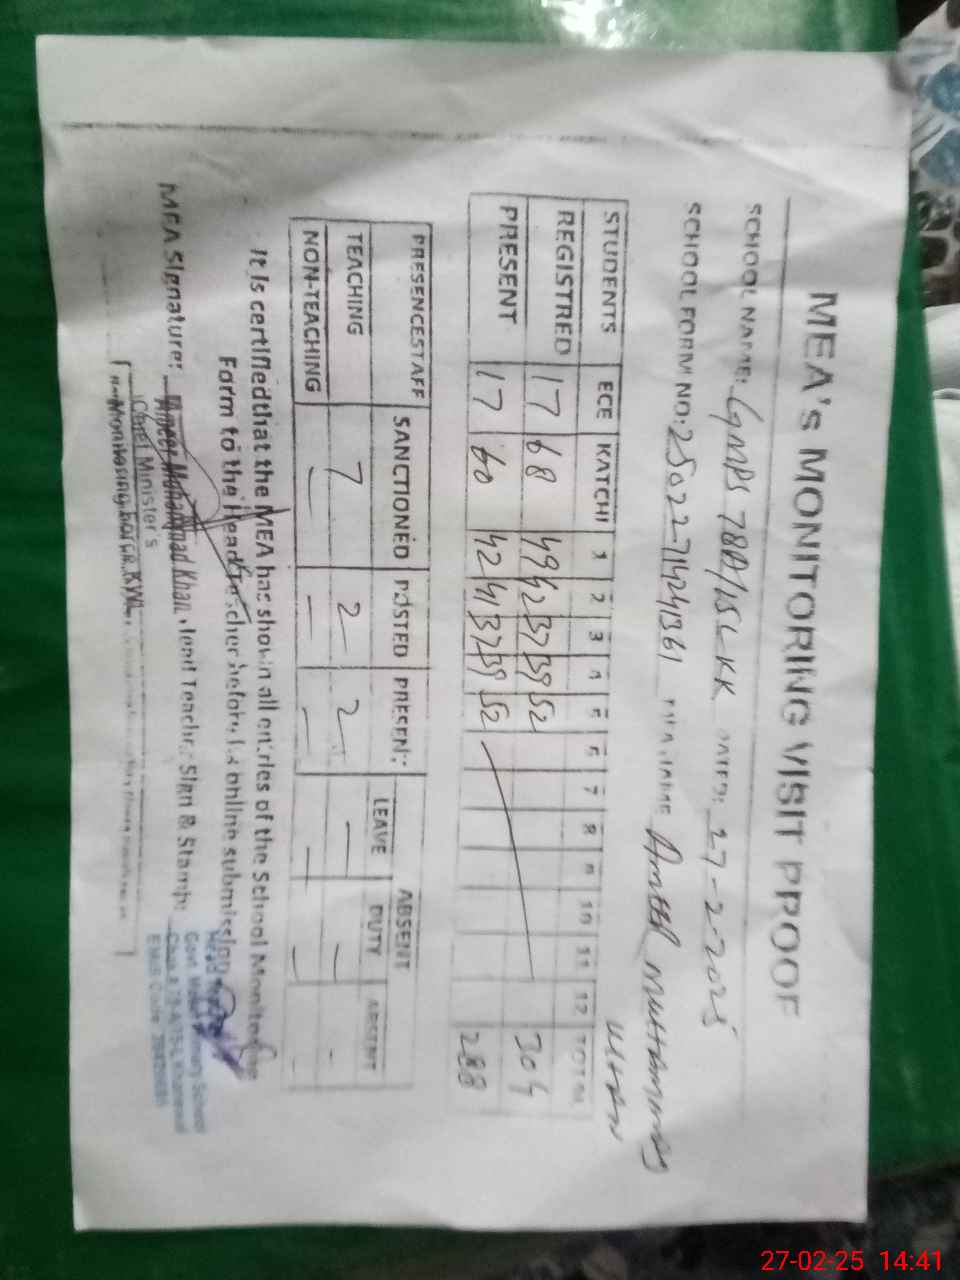 MEA's MONITORING VISIT PROOF
SCHOOL NAME: GMPS 78A/15L KK DATED: 27-2-2025
SCHOOL FORM NO: NAME AMEER MUHAMMAD
KHAN
STUDENTS ECE KATCHI 1 2 3 4 5 6 7 8 9 10 11 12 TOTAL
REGISTRED 17 68 49 42 37 39 52 304
PRESENT 17 60 42 41 37 39 52 288
PRESENCESTAFF SANCTIONED POSTED PRESENT ABSENT
LEAVE DUTY ABSENT
TEACHING 7 2 2 — — -
NON-TEACHING — — — — —
It is certified that the MEA has shown all entries of the School Monitoring
Form to the Head Teacher before its online submission
MEA Signature: Ameer Muhammad Khan Head Teacher Sign & Stamp:
Chief Minister's
Monitoring Force KWL
Head
Govt. Model Primary School
Chak # 78-A/15-L Khanewal
EMIS Code
27-02-25 14:41